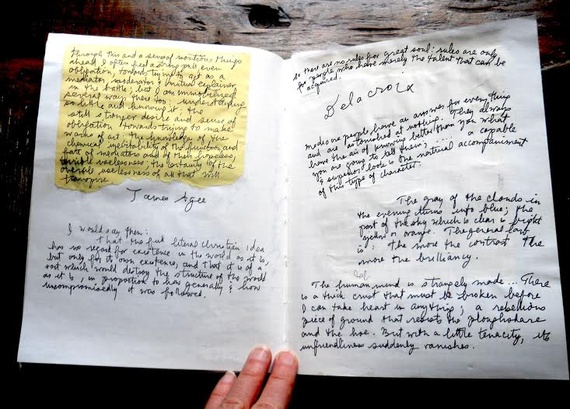 through this and a sense of
ahead I often feel a strong
obligation towards trying to act as a
mediator
in the battle; but I am
several ways there too: understanding
so little and
still stronger desire and sense of
obligation towards trying to make
works of art. The knowledge of the
chemical inevitability of the function and
fact of mediators and of their hopeless,
uselessness. The certainty of the
uselessness of all that will
transpire.
James Agee
I would say then:
that the first literal Christian idea
has no record for existence in the world as it is,
but only for it's own existence, and that it is of a
sort which would destroy the structure of the world
as it is, in proportion to how generally & how
uncompromisedly it was followed.
so there are no rules for great souls: rules are only
for people who have merely the talent that can be
acquired.
Delacroix
Modern people have an answer for everything
and are astonished at nothing. They always
have the air of knowing better than you what
you are going to tell them; ... a capable
& superior look is one natural accompaniment
of this type of character.
The gray of the clouds in
the evening turns into blue; the
part of the sky which is clear is bright
yellow or orange. The general law
is: the more the contrast the
more the brilliancy.
The human mind is strangely made... There
is a thick crust that must be broken before
I can take heart in anything; a rebellious
piece of ground that resists the ploughshare
and the hoe. But with a little tenacity, its
unfriendliness suddenly vanishes.